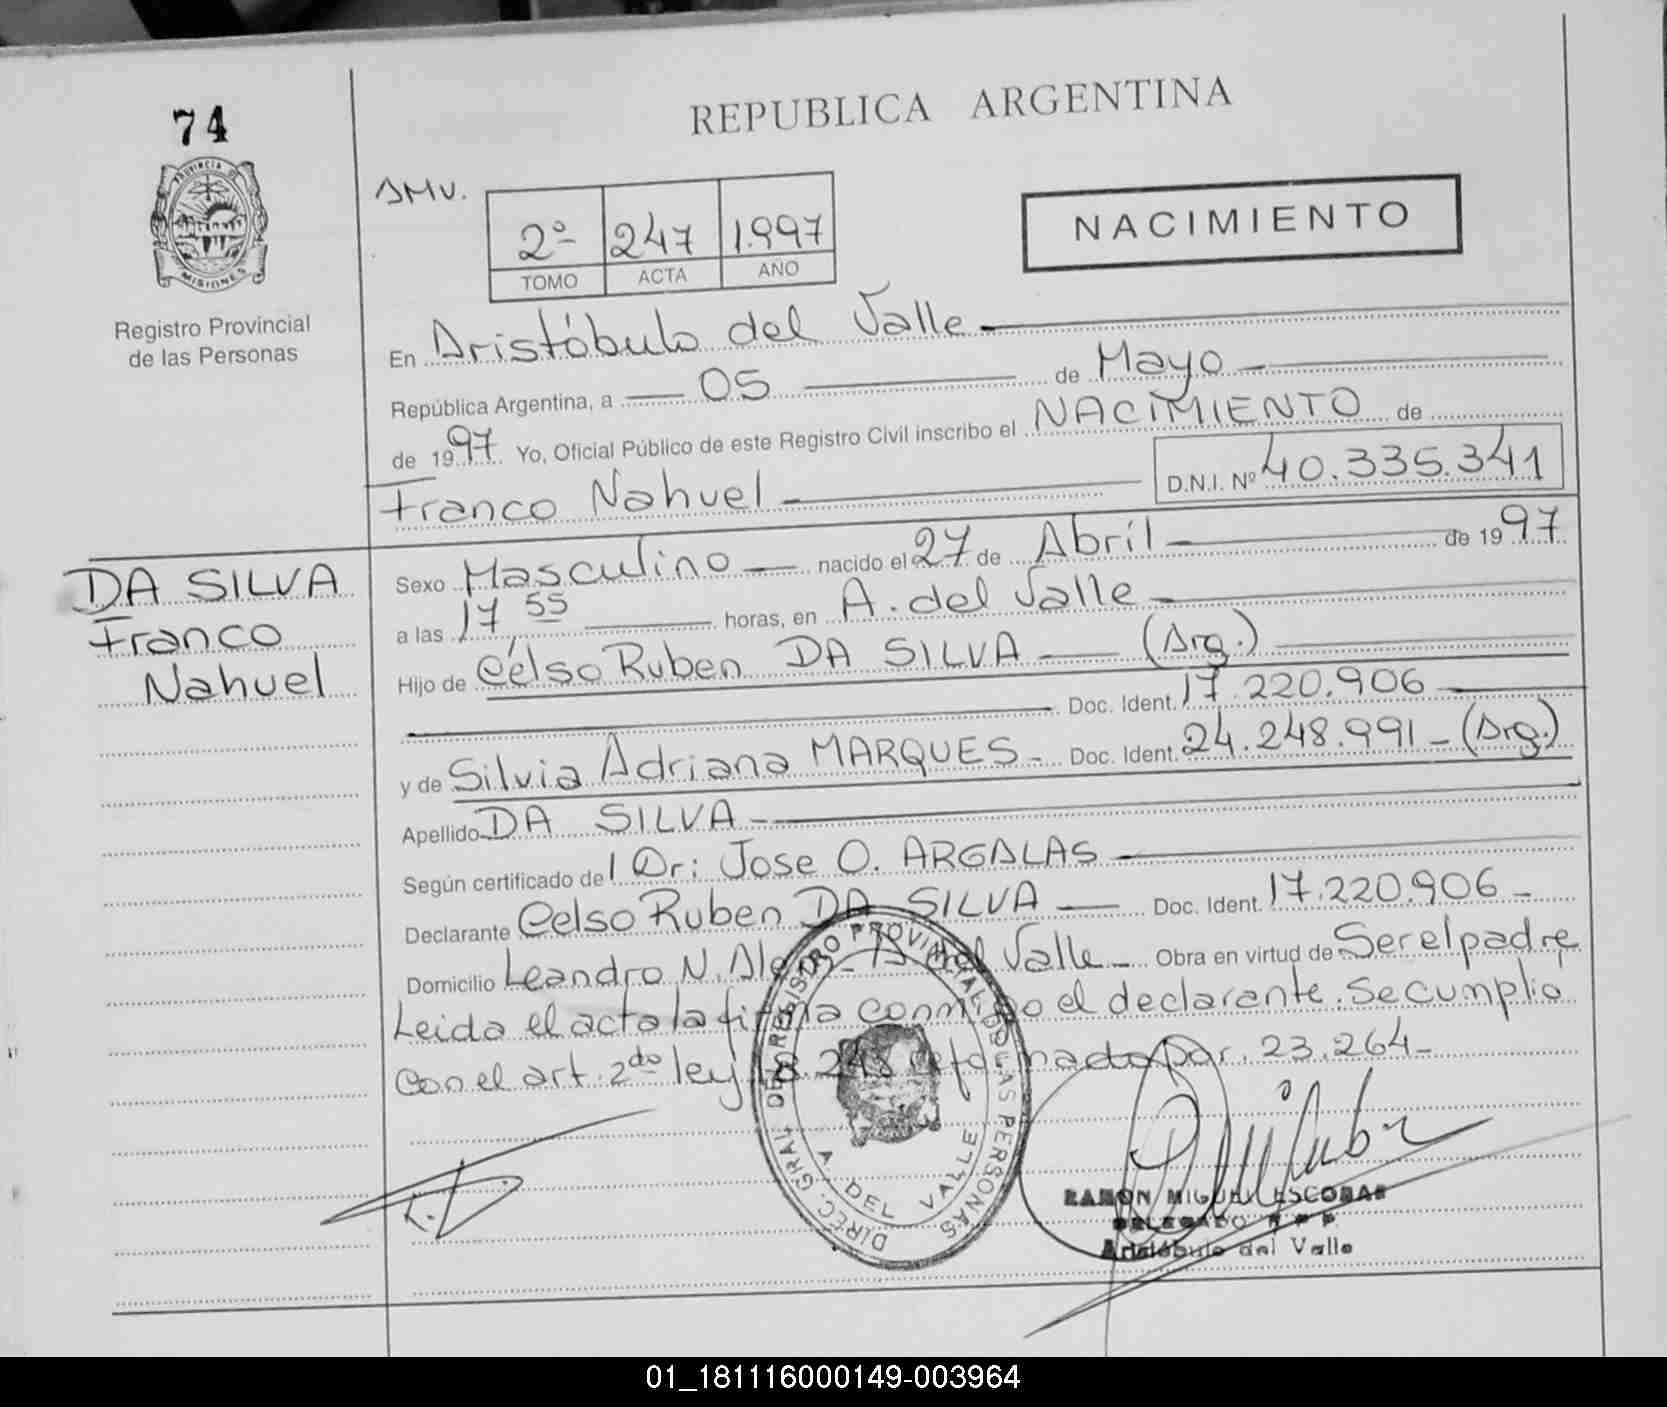 74
PROVINCIA DE
MISIONES
Registro Provincial
de las Personas
REPUBLICA ARGENTINA
AMV.
2º 247 1.997
TOMO ACTA AÑO
NACIMIENTO
En Aristóbulo del Valle
República Argentina, a 05 de Mayo
de 1997 Yo, Oficial Público de este Registro Civil inscribo el NACIMIENTO de
Franco Nahuel D.N.I. Nº 40.335.341
DA SILVA
Franco
Nahuel
Sexo Masculino nacido el 27 de Abril de 1997
a las 17 55 horas, en A. del Valle
Hijo de Celso Ruben DA SILVA (Arg.)
Doc. Ident. 17.220.906
y de Silvia Adriana MARQUES Doc. Ident. 24.248.991 (Arg.)
Apellido DA SILVA
Según certificado del Dr: Jose O. ARGALAS
Declarante Celso Ruben DA SILVA Doc. Ident. 17.220.906
Domicilio Leandro N. Alem A. del Valle Obra en virtud de Ser el padre
Leida el acta la firma conmigo el declarante. Se cumplió
con el art. 2do ley 18.248 reformado por. 23.264
DIREC. GRAL. DEL REGISTRO PROVINCIAL DE LAS PERSONAS
A. DEL VALLE
RAMON MIGUEL ESCOBAR
DELEGADO R P P
Aristóbulo del Valle
01_181116000149-003964